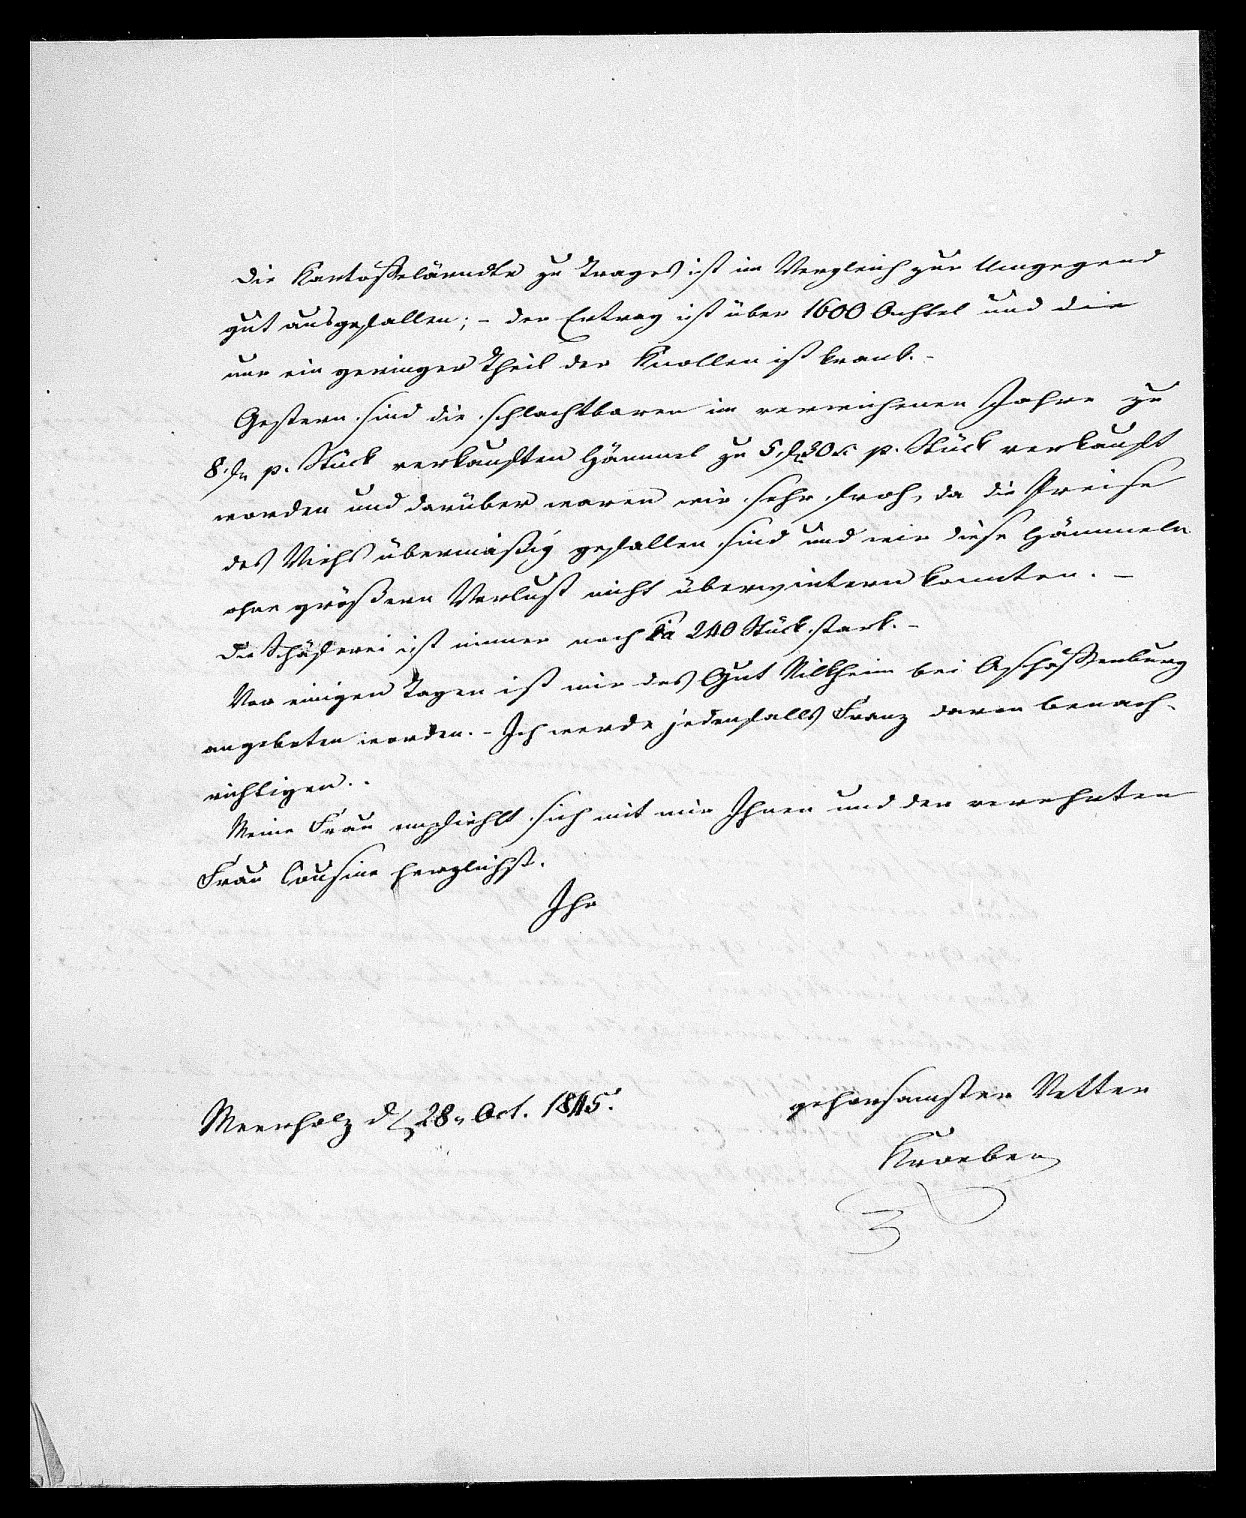 Die Kartoffelärndte zu Trages ist im Vergleich zur Umgegend
gut ausgefallen; - der Ertrag ist über 1600 Achtel und die
nur ein geringer Theil der Knollen ist krank. -
Gestern sind die schlachtbaren im verwichenen Jahre zu
8. fl p. Stück verkauften Hämmel zu 5. fl 30 x p. Stück verkauft
worden und darüber waren wir sehr froh, da die Preise
des Viehs übermäßig gefallen sind und wir diese Hämmeln
ohne größern Verlust nicht überwintern konnten. -
Die Schäferei ist immer noch 240 Stück stark. -
Vor einigen Tagen ist mir das Gut Nilkheim bei Aschaffenburg
angeboten worden. - Ich werde jedenfalls Franz davon benach-
richtigen. -
Meine Frau empfiehlt sich mit mir Ihnen und der verehrten
Frau Cousine herzlichst.
Ihr
gehorsamster Vetter
Meerholz d 28. Oct. 1845.
Kroeber